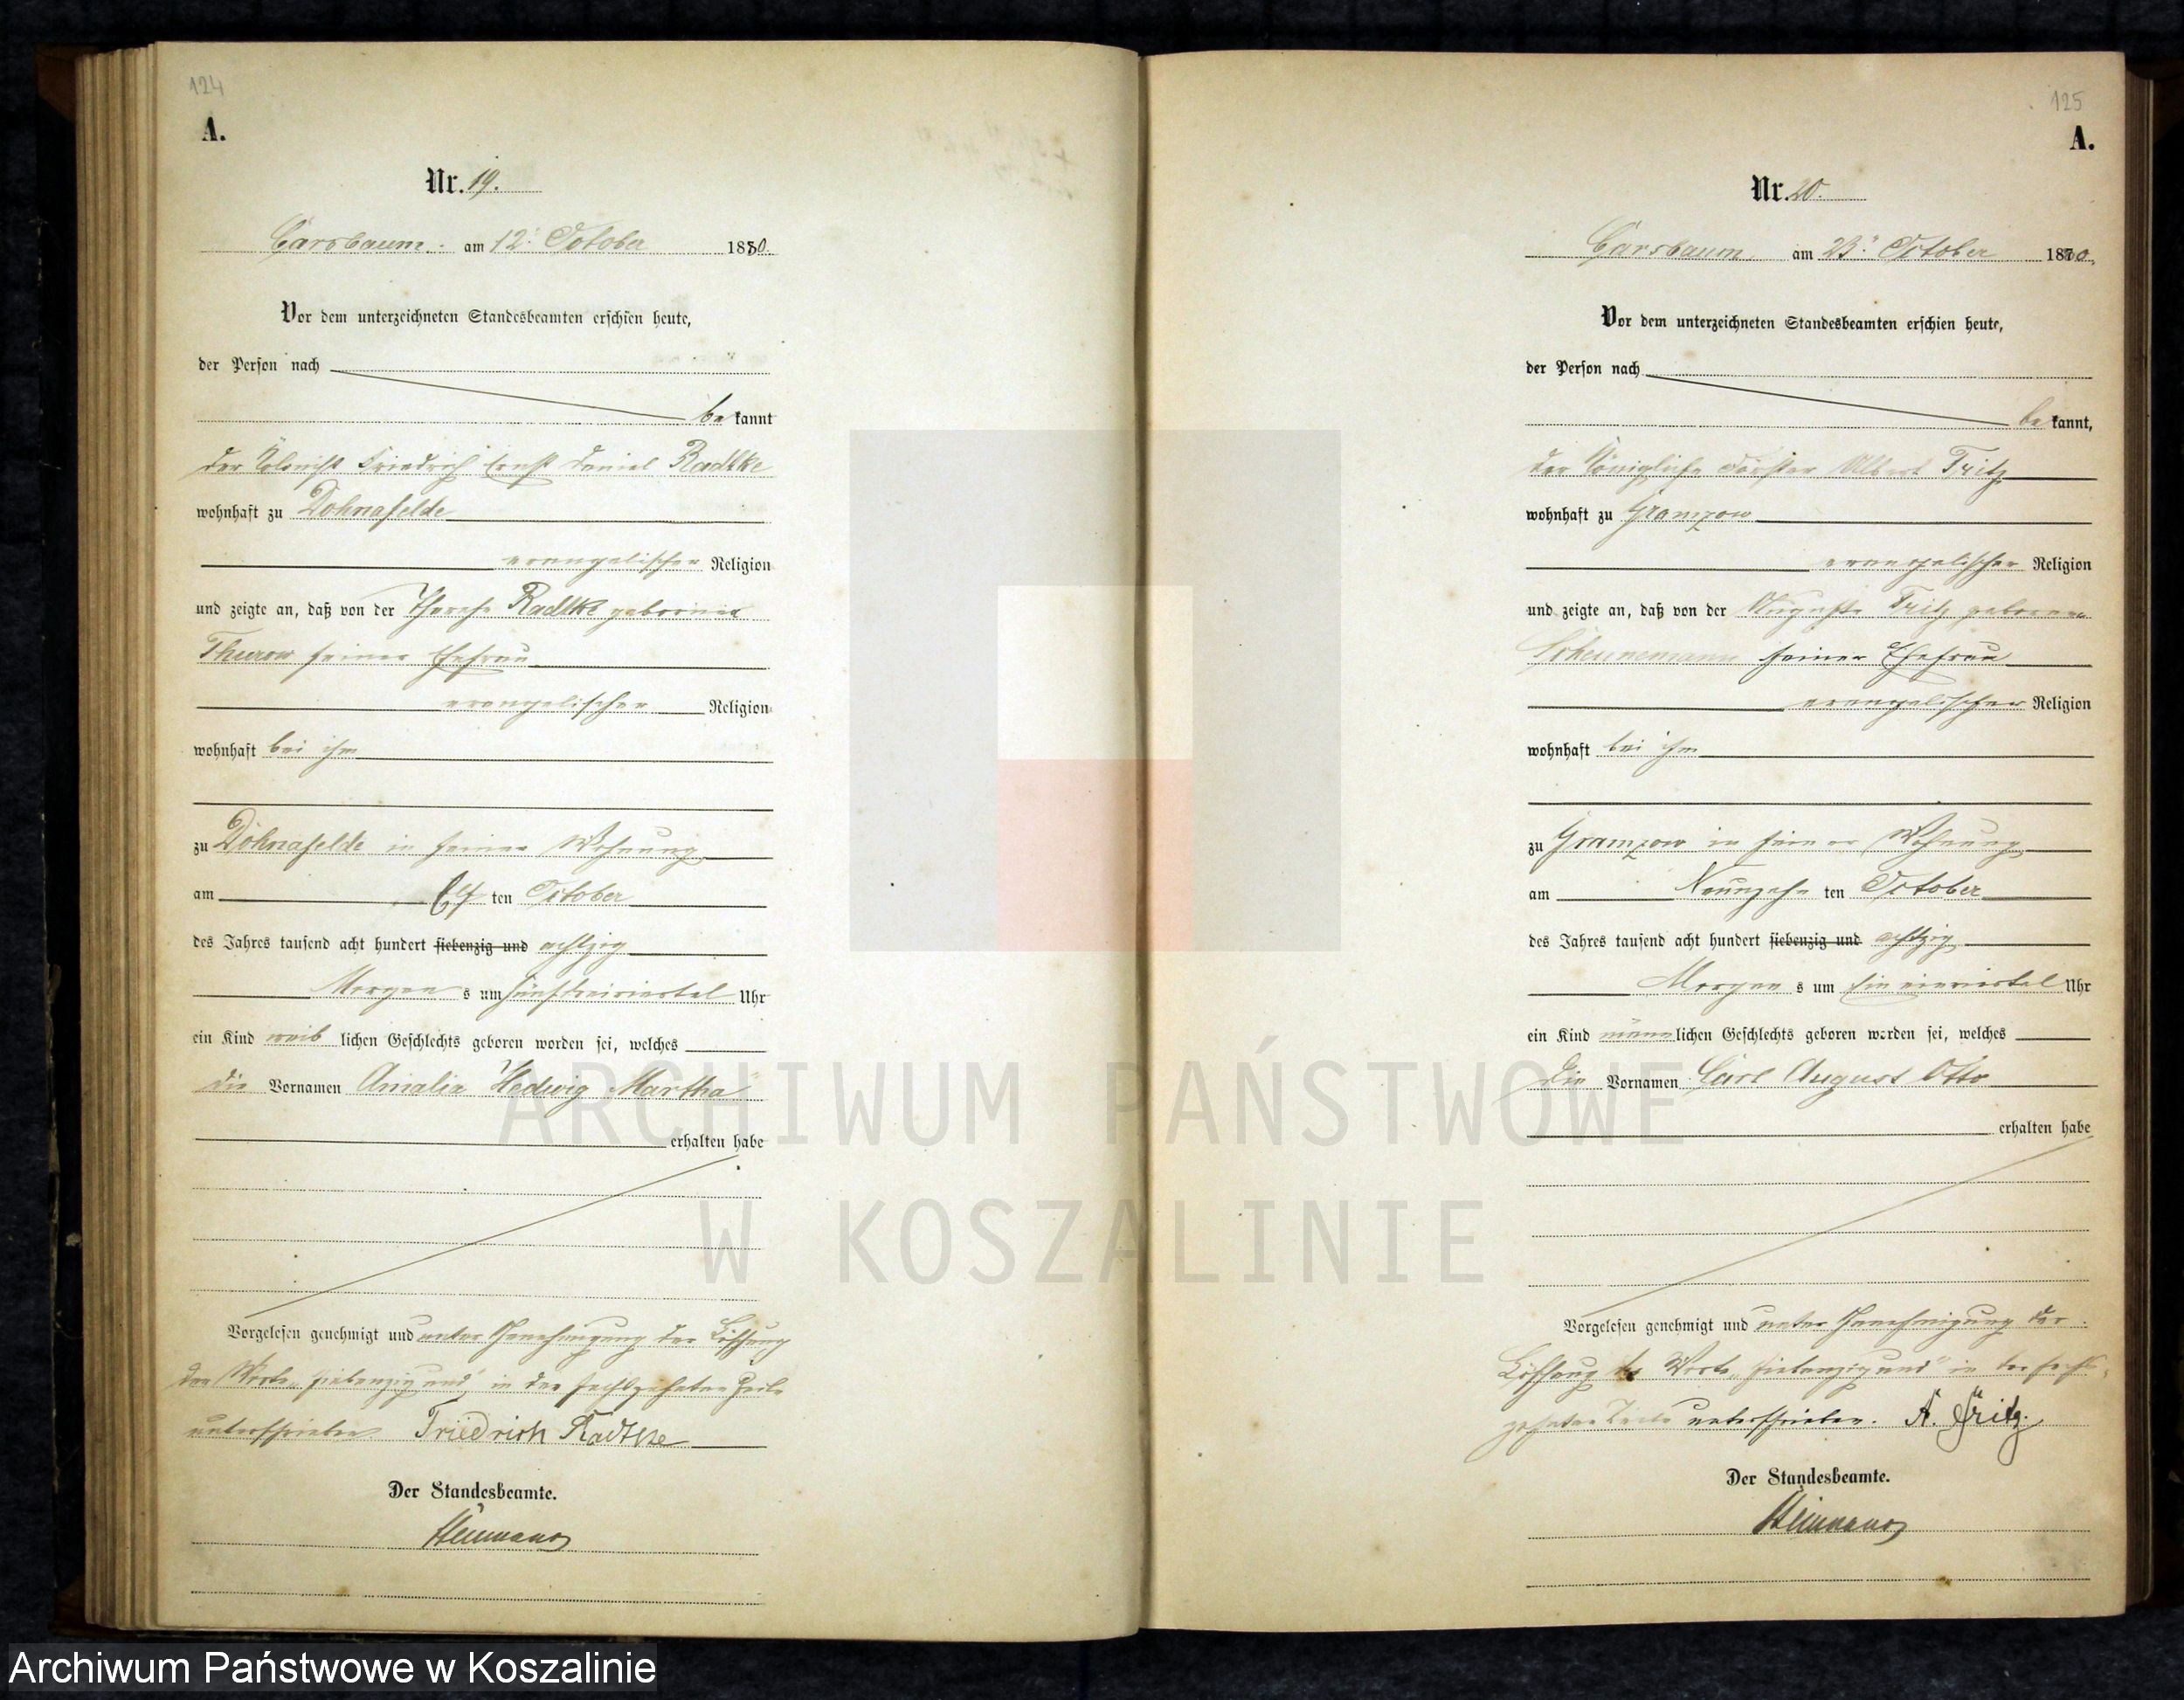 124
A.
Nr. 19.
Carsbaum. am 12. October 1880.
Vor dem unterzeichneten Standesbeamten erschien heute,
der Person nach
be kannt
der Kolonist Friedrich Ernst Daniel Radtke
wohnhaft zu Dohnafelde
evangelischer Religion
und zeigte an, daß von der Therese Radtke geborene
Thurow seiner Ehefrau
evangelischer Religion
wohnhaft bei ihm
zu Dohnafelde in seiner Wohnung
am Elf ten October
des Jahres tausend acht hundert siebenzig und achtzig
Morgen s um fünf dreiviertel Uhr
ein Kind weib lichen Geschlechts geboren worden sei, welches
die Vornamen Amalie Hedwig Martha
erhalten habe
Vorgelesen genehmigt und unter Genehmigung der Löschung
der Worte „siebenzig und" in der sechszehnten Zeile
unterschrieben Friedrich Radtke
Der Standesbeamte.
125
A.
Nr. 20.
Carsbaum. am 23. October 1880.
Vor dem unterzeichneten Standesbeamten erschien heute,
der Person nach
be kannt,
der Königliche Förster Albert Fritz
wohnhaft zu Grampow
evangelischer Religion
und zeigte an, daß von der Auguste Fritz geborene
Scheunemann seiner Ehefrau
evangelischer Religion
wohnhaft bei ihm
zu Grampow in seiner Wohnung
am Neunzehn ten October
des Jahres tausend acht hundert siebenzig und achtzig
Morgen s um ein einviertel Uhr
ein Kind männ lichen Geschlechts geboren worden sei, welches
die Vornamen Carl August Otto
erhalten habe
Vorgelesen genehmigt und unter Genehmigung der
Löschung der Worte „siebenzig und" in der sechs-
zehnten Zeile unterschrieben. A. Fritz.
Der Standesbeamte.
ARCHIWUM PAŃSTWOWE
W KOSZALINIE
Archiwum Państwowe w Koszalinie